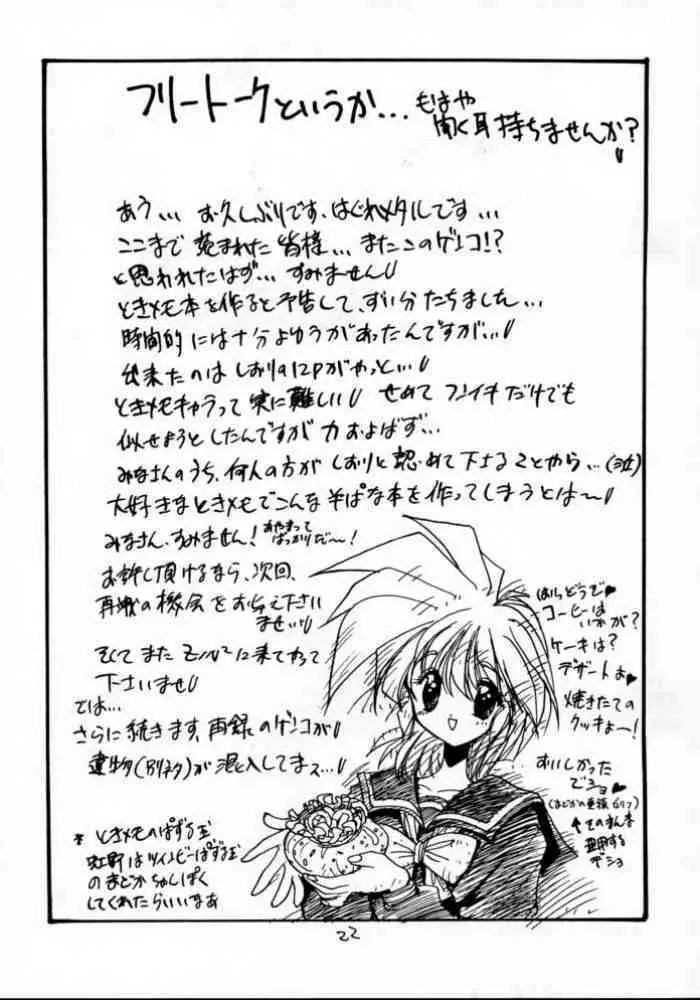 フリートークというか...もはや
聞く耳持ちませんか?
あう... お久しぶりです、はぐれメタルです...
ここまで 読まれた 皆様... またこのゲンコ!?
と思われたはず... すみません
ときメモ本を作ると予告して、ずい分たちました...
時間的には十分よゆうがあったんですが...
出来たのは しおりの12Pがやっと...
ときメモキャラって 実に難しい せめて フンイキだけでも
似せようとしたんですが 力およばず...
みなさんのうち、何人の方が しおりと認めて下さることやら...(泣)
大好きなときメモでこんな そぱな本を作ってしまうとは〜
みなさん、すみません! あやまって
ばっかりだ〜!
お許し頂けるなら、次回、
再戦の機会を お与え下さい
ませ
そしてまた に来てやって
下さいませ
では...
さらに続きます、再録のゲンコが
遺物(Hネタ)が 混入してまス...
* ときメモのぱずる玉
虹野はツインビーぱずる玉
の まどか ちゃんぽく
してくれたらいいなあ
はい、どうぞ♥
コーヒーは
いかが?
ケーキは?
デザートよ♥
焼きたての
クッキよー!
おいしかった
でショ♥
(まどかの セリフ)
↑そのまんま
するでショ
22